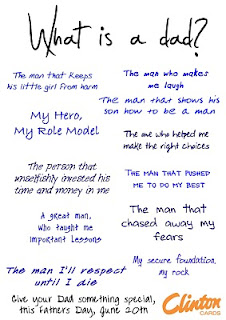 What is a dad?
The man that keeps
his little girl from harm
The man who makes
me laugh
The man that shows his
son how to be a man
My Hero,
My Role Model
The one who helped me
make the right choices
The person that
unselfishly invested his
time and money in me
The man that pushed
me to do my best
A great man,
who taught me
important lessons
The man that
chased away my
fears
My secure foundation,
my rock
The man I'll respect
until I die
Give your Dad something special,
this Fathers Day, June 20th
Clinton
CARDS